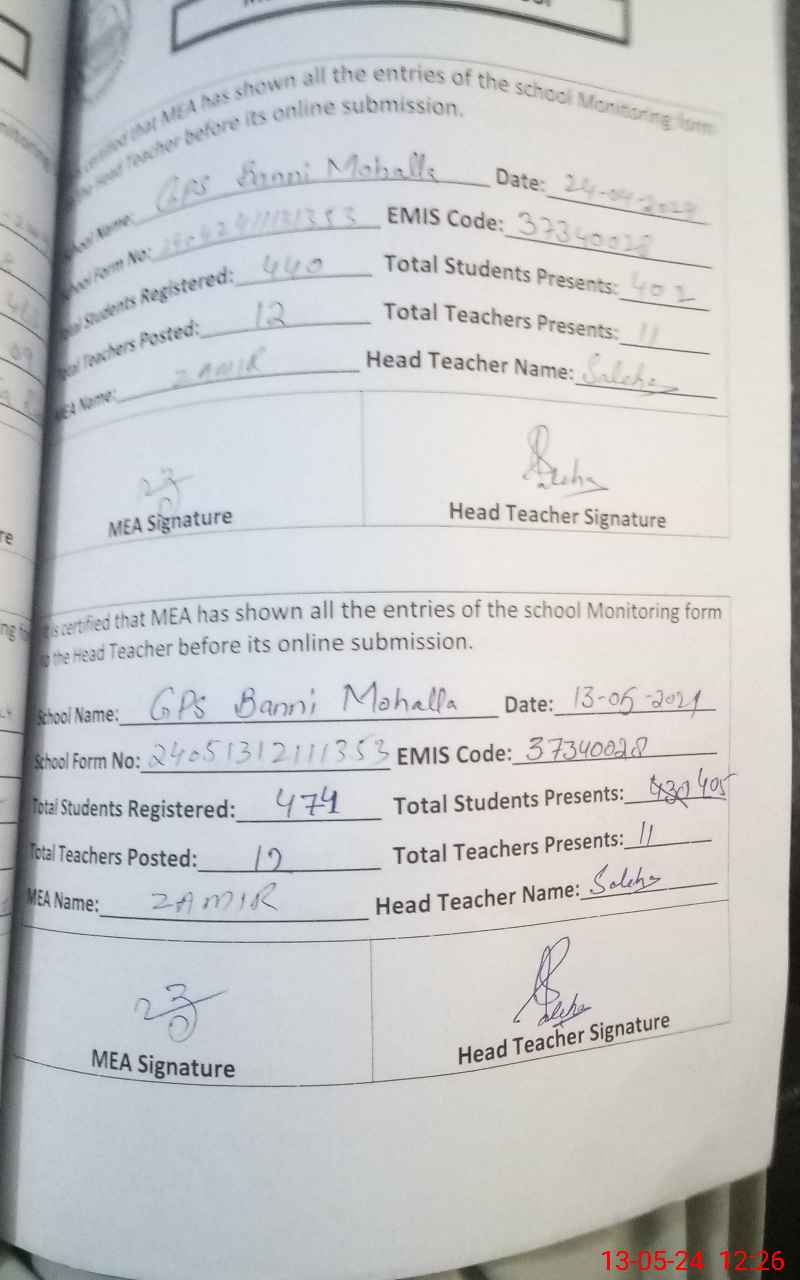 It is certified that MEA has shown all the entries of the school Monitoring form
to the Head Teacher before its online submission.
School Name: GPS Banni Mohalla Date: 24-04-2024
School Form No: EMIS Code: 37340028
Total Students Registered: 440 Total Students Presents: 402
Total Teachers Posted: 12 Total Teachers Presents: 11
MEA Name: ZAMIR Head Teacher Name: Saleha
Saleha
MEA Signature Head Teacher Signature
It is certified that MEA has shown all the entries of the school Monitoring form
to the Head Teacher before its online submission.
School Name: GPS Banni Mohalla Date: 13-05-2024
School Form No: 24051312111353 EMIS Code: 37340028
Total Students Registered: 474 Total Students Presents: 405
Total Teachers Posted: 12 Total Teachers Presents: 11
MEA Name: ZAMIR Head Teacher Name: Saleha
Saleha
MEA Signature Head Teacher Signature
13-05-24 12:26